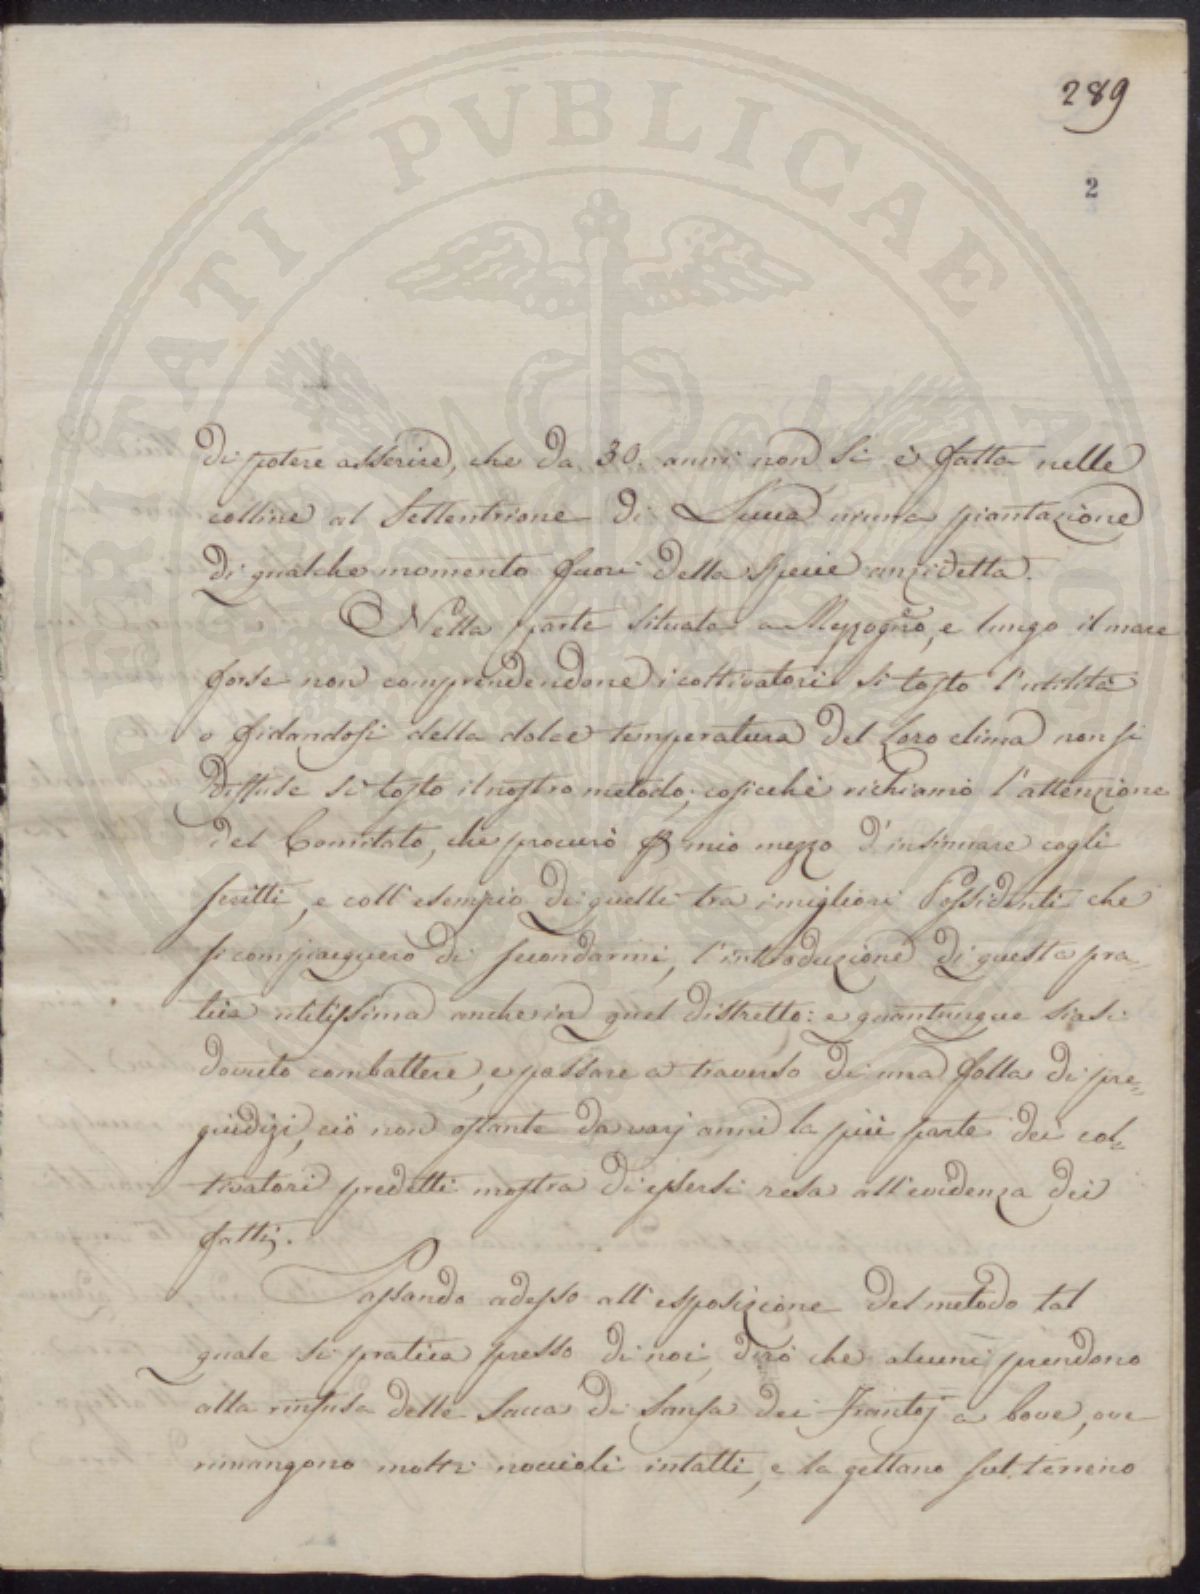 289
2
di potere asserire, che da 30. anni non si è fatta nelle
colline al Settentrione di Lucca niuna piantazione
di qualche momento fuori della specie anzidetta.
Nella parte situata a Mezzogno, e lungo il mare
forse non comprendendone i coltivatori si tosto l'utilità
o fidandosi della dolce temperatura del Loro clima non si
diffuse si tosto il nostro metodo; cosicchè richiamò l'attenzione
del Comitato, che procurò per mio mezzo d'insinuare cogli
scritti, e coll'esempio di quelli tra i migliori Possidenti che
si compiacquero di secondarmi, l'introduzione di questa pra-
tica utilissima anche in quel distretto: e quantunque siasi
dovuto combattere, e passare a traverso di una folla di pre=
giudizi, ciò non ostante da varj anni la più parte dei col=
tivatori predetti mostra di essersi resa all'evidenza dei
fatti.
Passando adesso all'esposizione del metodo tal
quale si pratica presso di noi, dirò che alcuni prendono
alla rinfusa delle sacca di sansa dei Frantoj a bove, ove
rimangono molti noccioli intatti, e la gettano sul terreno
PERITATI PVBLICAE